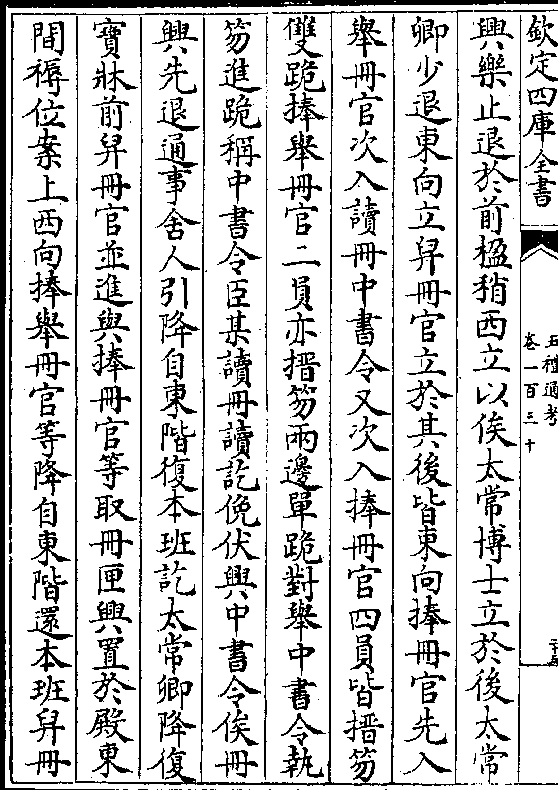 欽定四庫全書
五禮通考
卷一百三十
興樂止退於前楹稍西立以俟太常博士立於後太常
卿少退東向立舁冊官立於其後皆東向捧冊官先入
舉冊官次入讀冊中書令又次入捧冊官四員皆搢笏
雙跪捧舉冊官二員亦搢笏兩邊單跪對舉中書令執
笏進跪稱中書令臣某讀冊讀訖俛伏興中書令俟冊
興先退通事舍人引降自東階復本班訖太常卿降復
寳牀前舁冊官並進與捧冊官等取冊匣興置於殿東
間褥位案上西向捧舉冊官等降自東階還本班舁冊